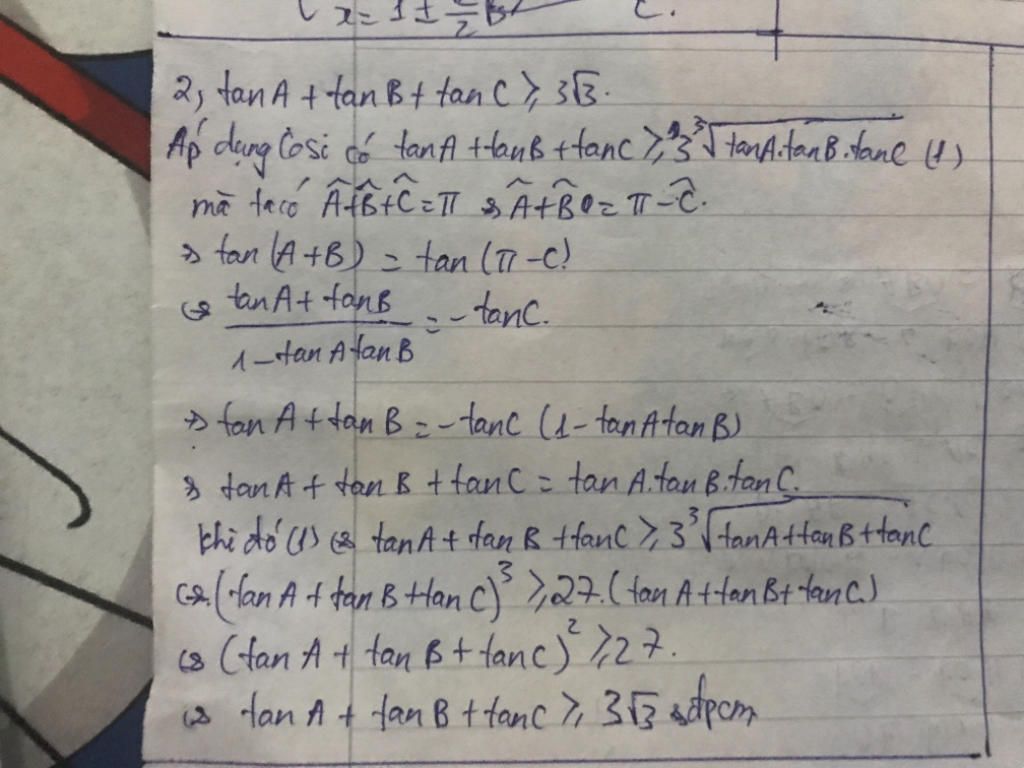 x = 1 ± 
2, tanA + tanB + tanC ≥ 3√3.
Áp dụng Cosi có tanA + tanB + tanC ≥ 3∛(tanA.tanB.tanC) (1)
mà ta có Â+B̂+Ĉ = π ⇒ Â+B̂ = π - Ĉ.
⇒ tan(A+B) = tan(π-C)
⇔ (tanA + tanB)/(1 - tanAtanB) = - tanC.
⇒ tanA + tanB = - tanC (1 - tanAtanB)
⇒ tanA + tanB + tanC = tanA.tanB.tanC.
khi đó (1) ⇔ tanA + tanB + tanC ≥ 3∛(tanA+tanB+tanC)
⇔ (tanA + tanB + tanC)³ ≥ 27.(tanA + tanB + tanC)
⇔ (tanA + tanB + tanC)² ≥ 27.
⇔ tanA + tanB + tanC ≥ 3√3 ⇒ đpcm